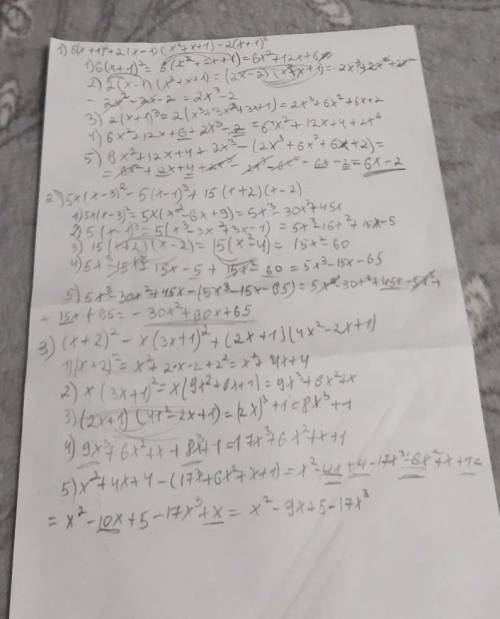 1) 6(x+1)²+2(x-1)(x²+x+1)-2(x+1)³
1) 6(x+1)²=6(x²+2x+1)=6x²+12x+6
2) 2(x-1)(x²+x+1)=(2x-2)(x²+x+1)=2x³+2x²+2x-
-2x²-2x-2=2x³-2
3) 2(x+1)³=2(x³+3x²+3x+1)=2x³+6x²+6x+2
4) 6x²+12x+6+2x³-2=6x²+12x+4+2x³
5) 6x²+12x+4+2x³-(2x³+6x²+6x+2)=
=6x²+12x+4+2x³-2x³-6x²-6x-2=6x-2
2) 5x(x-3)²-5(x-1)³+15(x+2)(x-2)
1) 5x(x-3)²=5x(x²-6x+9)=5x³-30x²+45x
2) 5(x-1)³=5(x³-3x²+3x-1)=5x³-15x²+15x-5
3) 15(x+2)(x-2)=15(x²-4)=15x²-60
4) 5x³-15x²+15x-5+15x²-60=5x³-15x-65
5) 5x³-30x²+45x-(5x³-15x-65)=5x³-30x²+45x-5x³+
+15x+65=-30x²+60x+65
3) (x+2)²-x(3x+1)²+(2x+1)(4x²-2x+1)
1) (x+2)²=x²+2·x·2+2²=x²+4x+4
2) x(3x+1)²=x(9x²+6x+1)=9x³+6x²+x
3) (2x+1)(4x²-2x+1)=(2x)³+1=8x³+1
4) 9x³+6x²+x+8x³+1=17x³+6x²+x+1
5) x²+4x+4-(17x³+6x²+x+1)=x²-4x+4-17x³-6x²+x+1=
=x²-10x+5-17x³+x=x²-9x+5-17x³